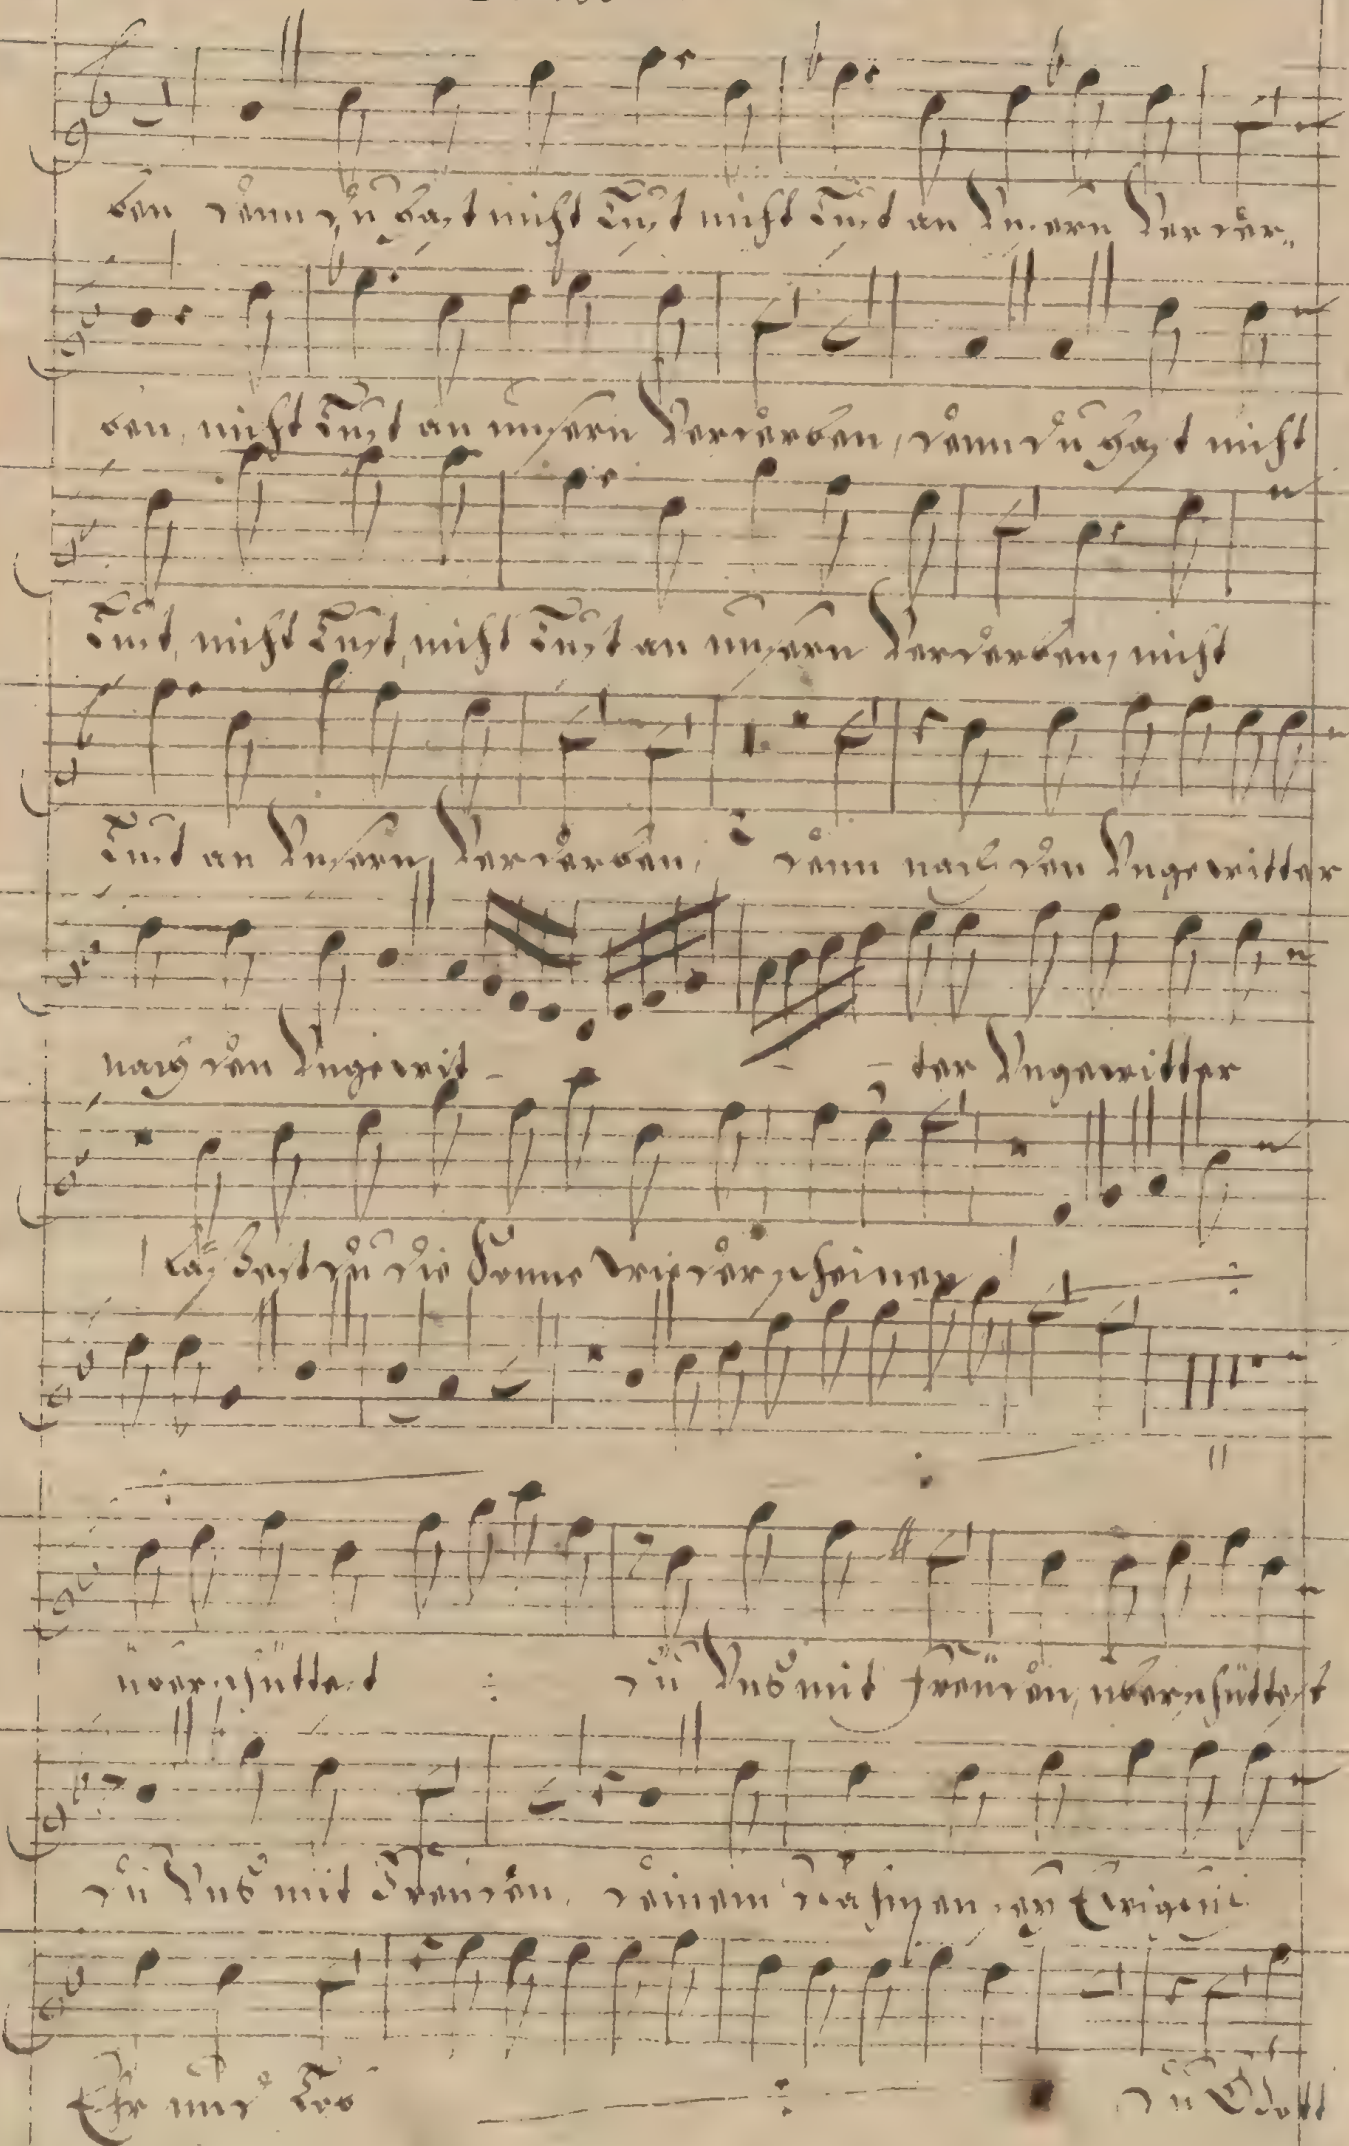 ben denn du hast nicht Lust nicht Lust an Unsern Verder-
ben, nicht Lust an unsern Verderben, denn du hast nicht
Lust, nicht Lust, nicht Lust an unsern Verderben, nicht
Lust an Unsern Verderben, denn nach den Ungewitter
nach den Ungewit - - - ter Ungewitter
laßest du die Sonne wieder scheinen
überschüttest : du Uns mit Freuden, überschüttest
du Uns mit Freuden, deinem Nahmen sey Ewig
Ehr und Lob : du Gott